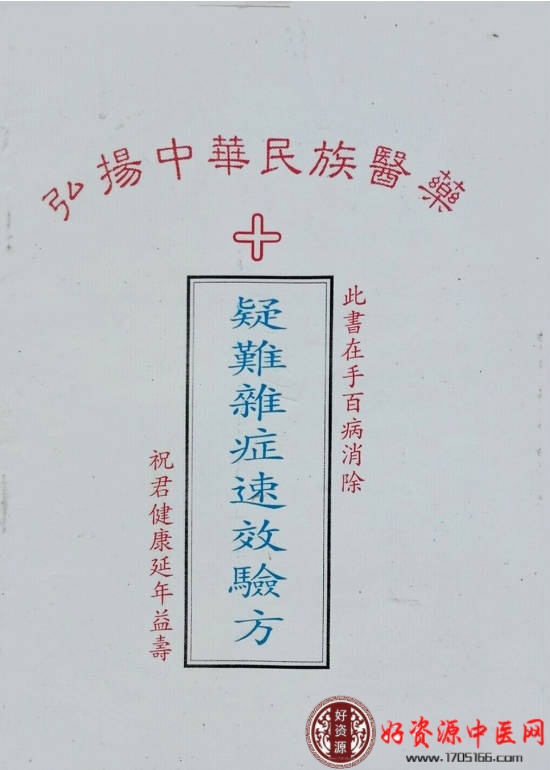 弘揚中華民族醫藥
此書在手百病消除
疑難雜症速效驗方
祝君健康延年益壽
好资源
好资源中医网
www.1705166.com